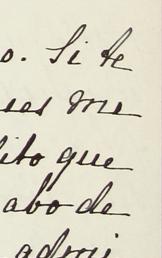 o. Si te
ues me
ito que
abo de
admi